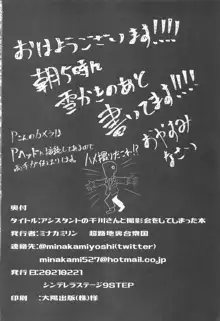 おはようございます!!!!
朝5時に
雪かきのあと
書いてます!!!!
おやすみ
なさい
Pさんのカメラは
Pヘッドに
ハメ撮りたこ!?
奥付
タイトル:アシスタントの千川さんと撮影会をしてしまった本
発行者:ミナカミリン 超路地裏合衆国
連絡先:@minakamiyoshi(twitter)
minakami527@hotmail.co.jp
発行日:20210221
シンデレラステージ9STEP
印刷 :大陽出版(株)様